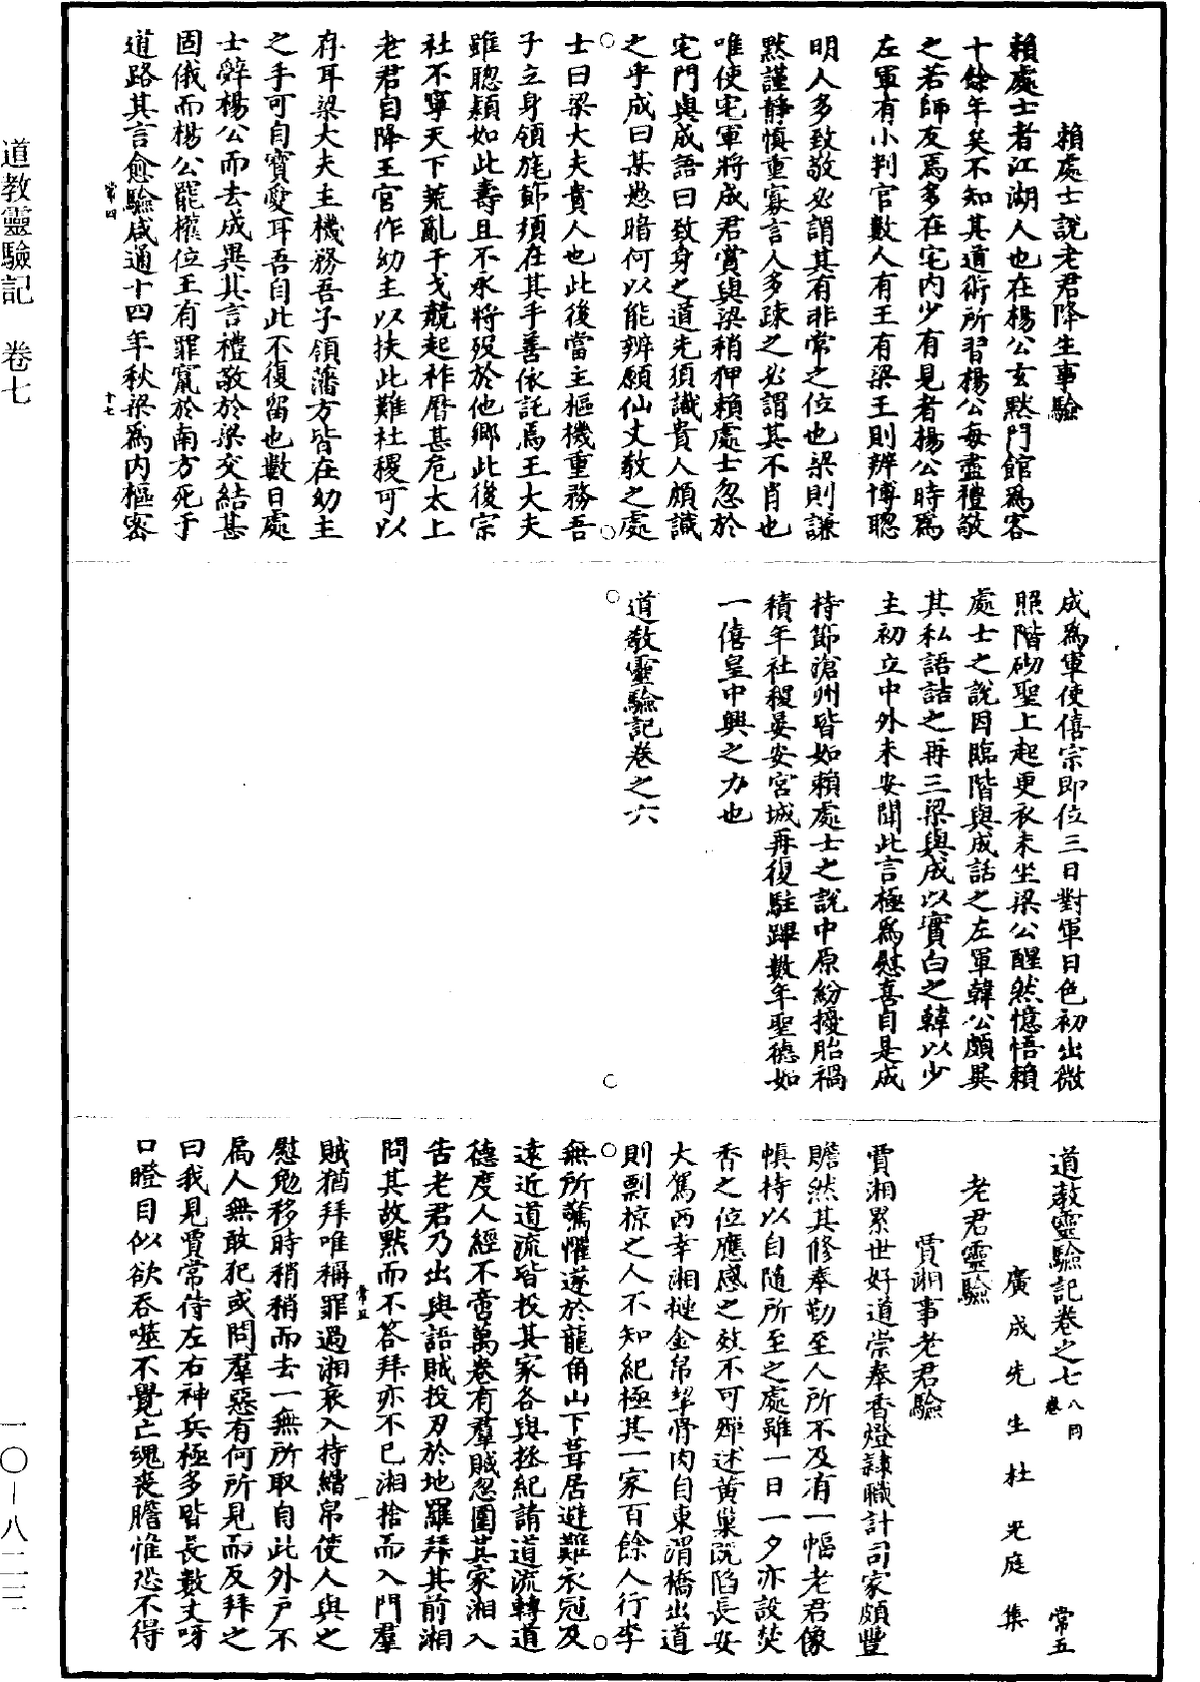 賴處士說老君降生事驗
賴處士者江湖人也在楊公玄默門館爲客
十餘年矣不知其道術所習楊公每盡禮敬
之若師友焉多在宅內少有見者楊公時爲
左軍有小判官數人有王有梁王則辨博聰
明人多致敬必謂其有非常之位也梁則謙
默謹靜慎重寡言人多疎之必謂其不肖也
唯使宅軍將成君賞與梁稍狎賴處士忽於
宅門與成語曰致身之道先須識貴人頗識
之乎成曰某愚暗何以能辨願仙丈教之處
士曰梁大夫貴人也此後當主樞機重務吾
子立身領旄節須在其手善依託焉王大夫
雖聰穎如此壽且不永將歿於他鄉此後宗
社不寧天下荒亂干戈競起祚曆甚危太上
老君自降王宮作幼主以扶此難社稷可以
存耳梁大夫主機務吾子領藩方皆在幼主
之手可自寶愛耳吾自此不復留也數日處
士辭楊公而去成異其言禮敬於梁交結甚
固俄而楊公罷權位王有罪竄於南方死于
道路其言愈驗咸通十四年秋梁爲內樞密
常四
十七
成爲軍使僖宗即位三日對軍日色初出微
照階砌聖上起更衣未坐梁公醒然憶悟賴
處士之說因臨階與成話之左軍韓公頗異
其私語詰之再三梁與成以實白之韓以少
主初立中外未安聞此言極爲慰喜自是成
持節滄州皆如賴處士之說中原紛擾胎禍
積年社稷晏安宮城再復駐蹕數年聖德如
一僖皇中興之力也
道教靈驗記卷之六
道教靈驗記卷之七 八同卷
常五
廣成先生杜光庭集
老君靈驗
賈湘事老君驗
賈湘累世好道崇奉香燈隸職計司家頗豐
贍然其修奉勤至人所不及有一幅老君像
幀持以自隨所至之處雖一日一夕亦設焚
香之位應感之效不可殫述黃巢既陷長安
大駕西幸湘挈金帛挈骨肉自東渭橋出道
則剽掠之人不知紀極其一家百餘人行李
無所驚懼遂於龍角山下葺居避難衣冠及
遠近道流皆投其家各與拯紀請道流轉道
德度人經不啻萬卷有羣賊忽圍其家湘入
告老君乃出與語賊投刃於地羅拜其前湘
問其故默而不答拜亦不已湘捨而入門羣
常五
一
賊猶拜唯稱罪過湘哀入持繒帛使人與之
慰勉移時稍稍而去一無所取自此外戶不
扃人無敢犯或問羣惡有何所見而反拜之
曰我見賈常侍左右神兵極多皆長數丈呀
口瞪目似欲吞噬不覺亡魂喪膽惟恐不得
道教靈驗記 卷七
一〇—八二三